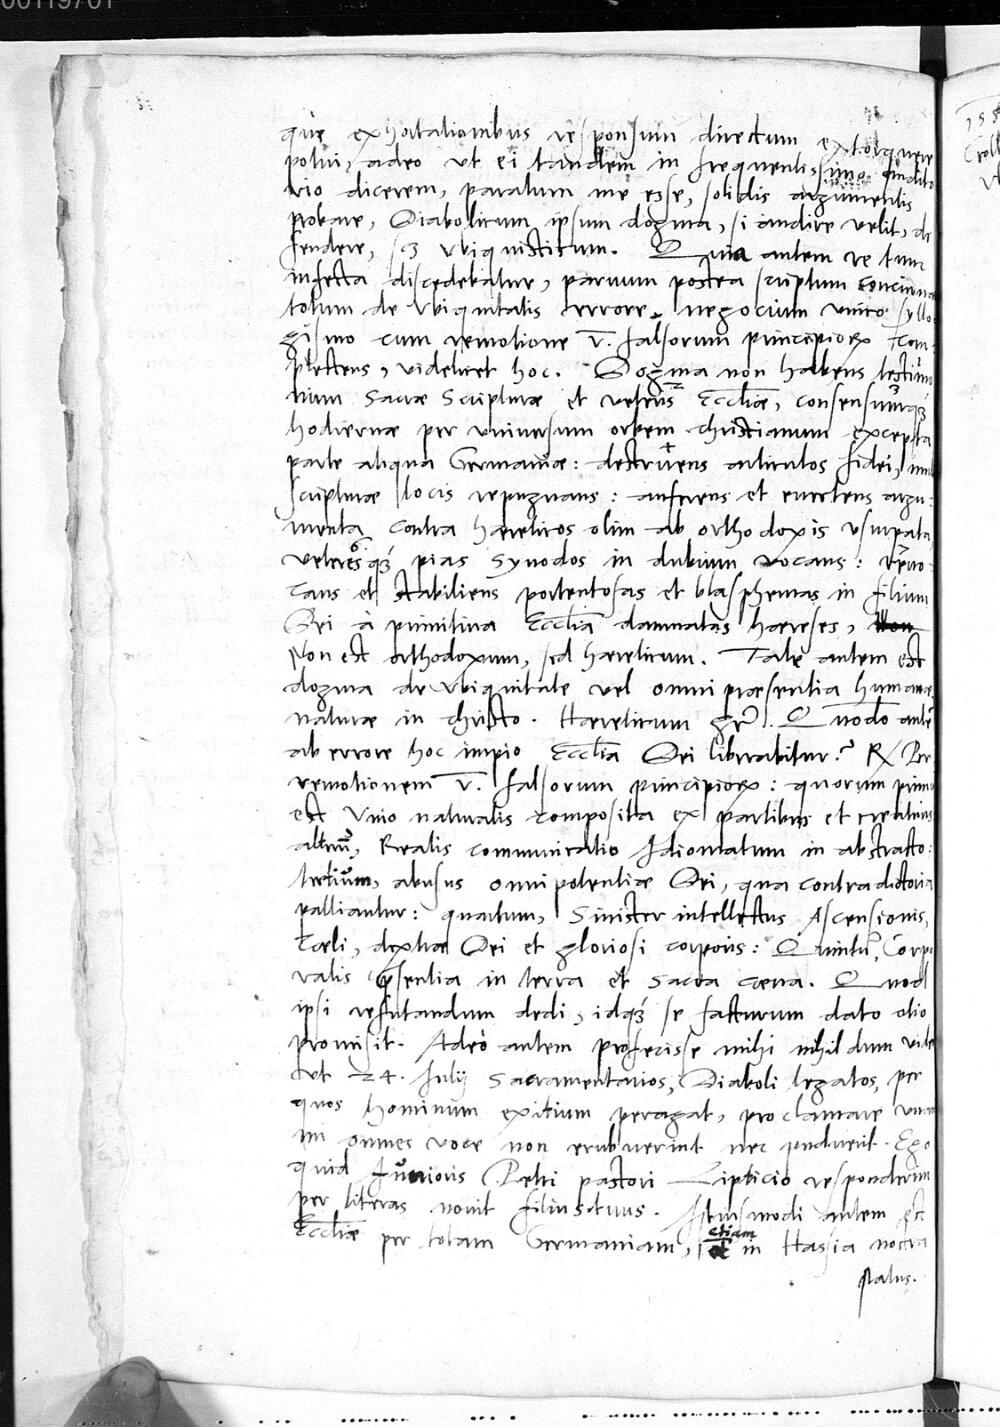 00119701
que exhortationibus responsum directum extorquere
potui, adeo ut ei tandem in frequentissimo audito
rio dicerem, paratum me esse, solidis argumentis
probare, Diabolicum ipsum dogma, si audire velit, de
fendere, scz Ubiquisticum. Quia autem re tunc
infecta discedebatur, parvum postea scriptum concinna
totum de Ubiquitatis errore negocium unico syllo
gismo cum remotione V. falsorum principiorum com
plectens, videlicet hoc. Dogma non habens testimo
nium Sacrae Scripturae et veteris Eccliae, consensumq́
hodiernae per universum orbem christianum excepta
parte aliqua Germaniae: destruens articulos fidei,
scripturae locis repugnans: auferens et evertens argu
menta contra haereticos olim ab orthodoxis usurpata,
veteresq́ pias Synodos in dubium vocans: revo
cans et stabiliens portentosas et blasphemas in filium
Dei à primitiva Ecclia damnatas haereses,
Non est orthodoxum, sed haereticum. Tale autem est
dogma de Ubiquitate vel omnipraesentia humanae
naturae in christo. Haereticum gr̃. Quodo autē
ab errore hoc impio Ecclia Dei liberabitur? R. Per
remotionem V. falsorum principiorum: quorum primū
est Unio naturalis composita ex partibus et creaturis
alterū, Realis communicatio Idiomatum in abstracto:
tertium, abusus omnipotentiae Dei, qua contradictoria
palliantur: quartum, Sinister intellectus Ascensionis,
Coeli, dextrae Dei et gloriosi corporis: Quintū, Corpo
ralis pſentia in terra et Sacra coena. Quod
ipsi refutandum dedi, idq́ se facturum dato otio
promisit. Adeò autem profecisse mihi nihil dum vide
ut 24. Julij Sacramentarios, Diaboli legatos, per
quos hominum exitium peragat, proclamare una
mi omnes voce non erubuerint nec puduerit. Ego
quid Junioris Petri pastori Lipticio responderim
per literas novit filius tuus. Istiusmodi autem est
Eccliae per totam Germaniam, etiam in Hassia nostra
status.